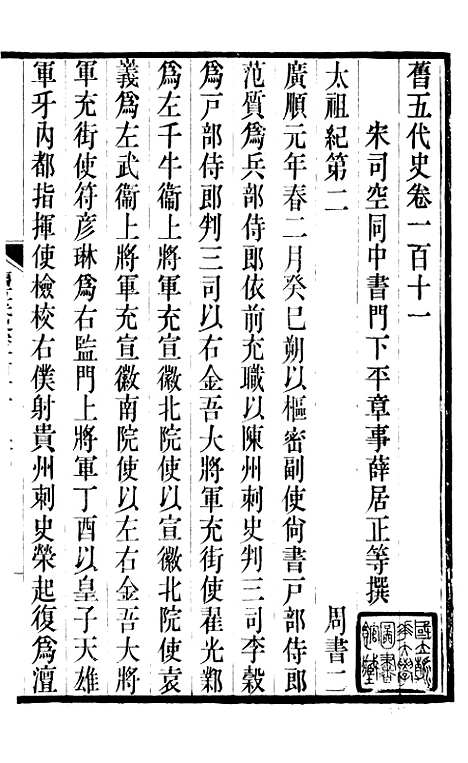 舊五代史卷一百十一
宋司空同中書門下平章事薛居正等撰
太祖紀第二 周書二
廣順元年春二月癸巳朔以樞密副使尙書戸部侍郎
范質爲兵部侍郎依前充職以陳州刺史判三司李穀
爲戸部侍郎判三司以右金吾大將軍充街使翟光鄴
爲左千牛衞上將軍充宣徽北院使以宣徽北院使袁
義爲左武衞上將軍充宣徽南院使以左右金吾大將
軍充街使符彦琳爲右監門上將軍丁酉以皇子天雄
軍牙內都指揮使檢校右僕射貴州刺史榮起復爲澶